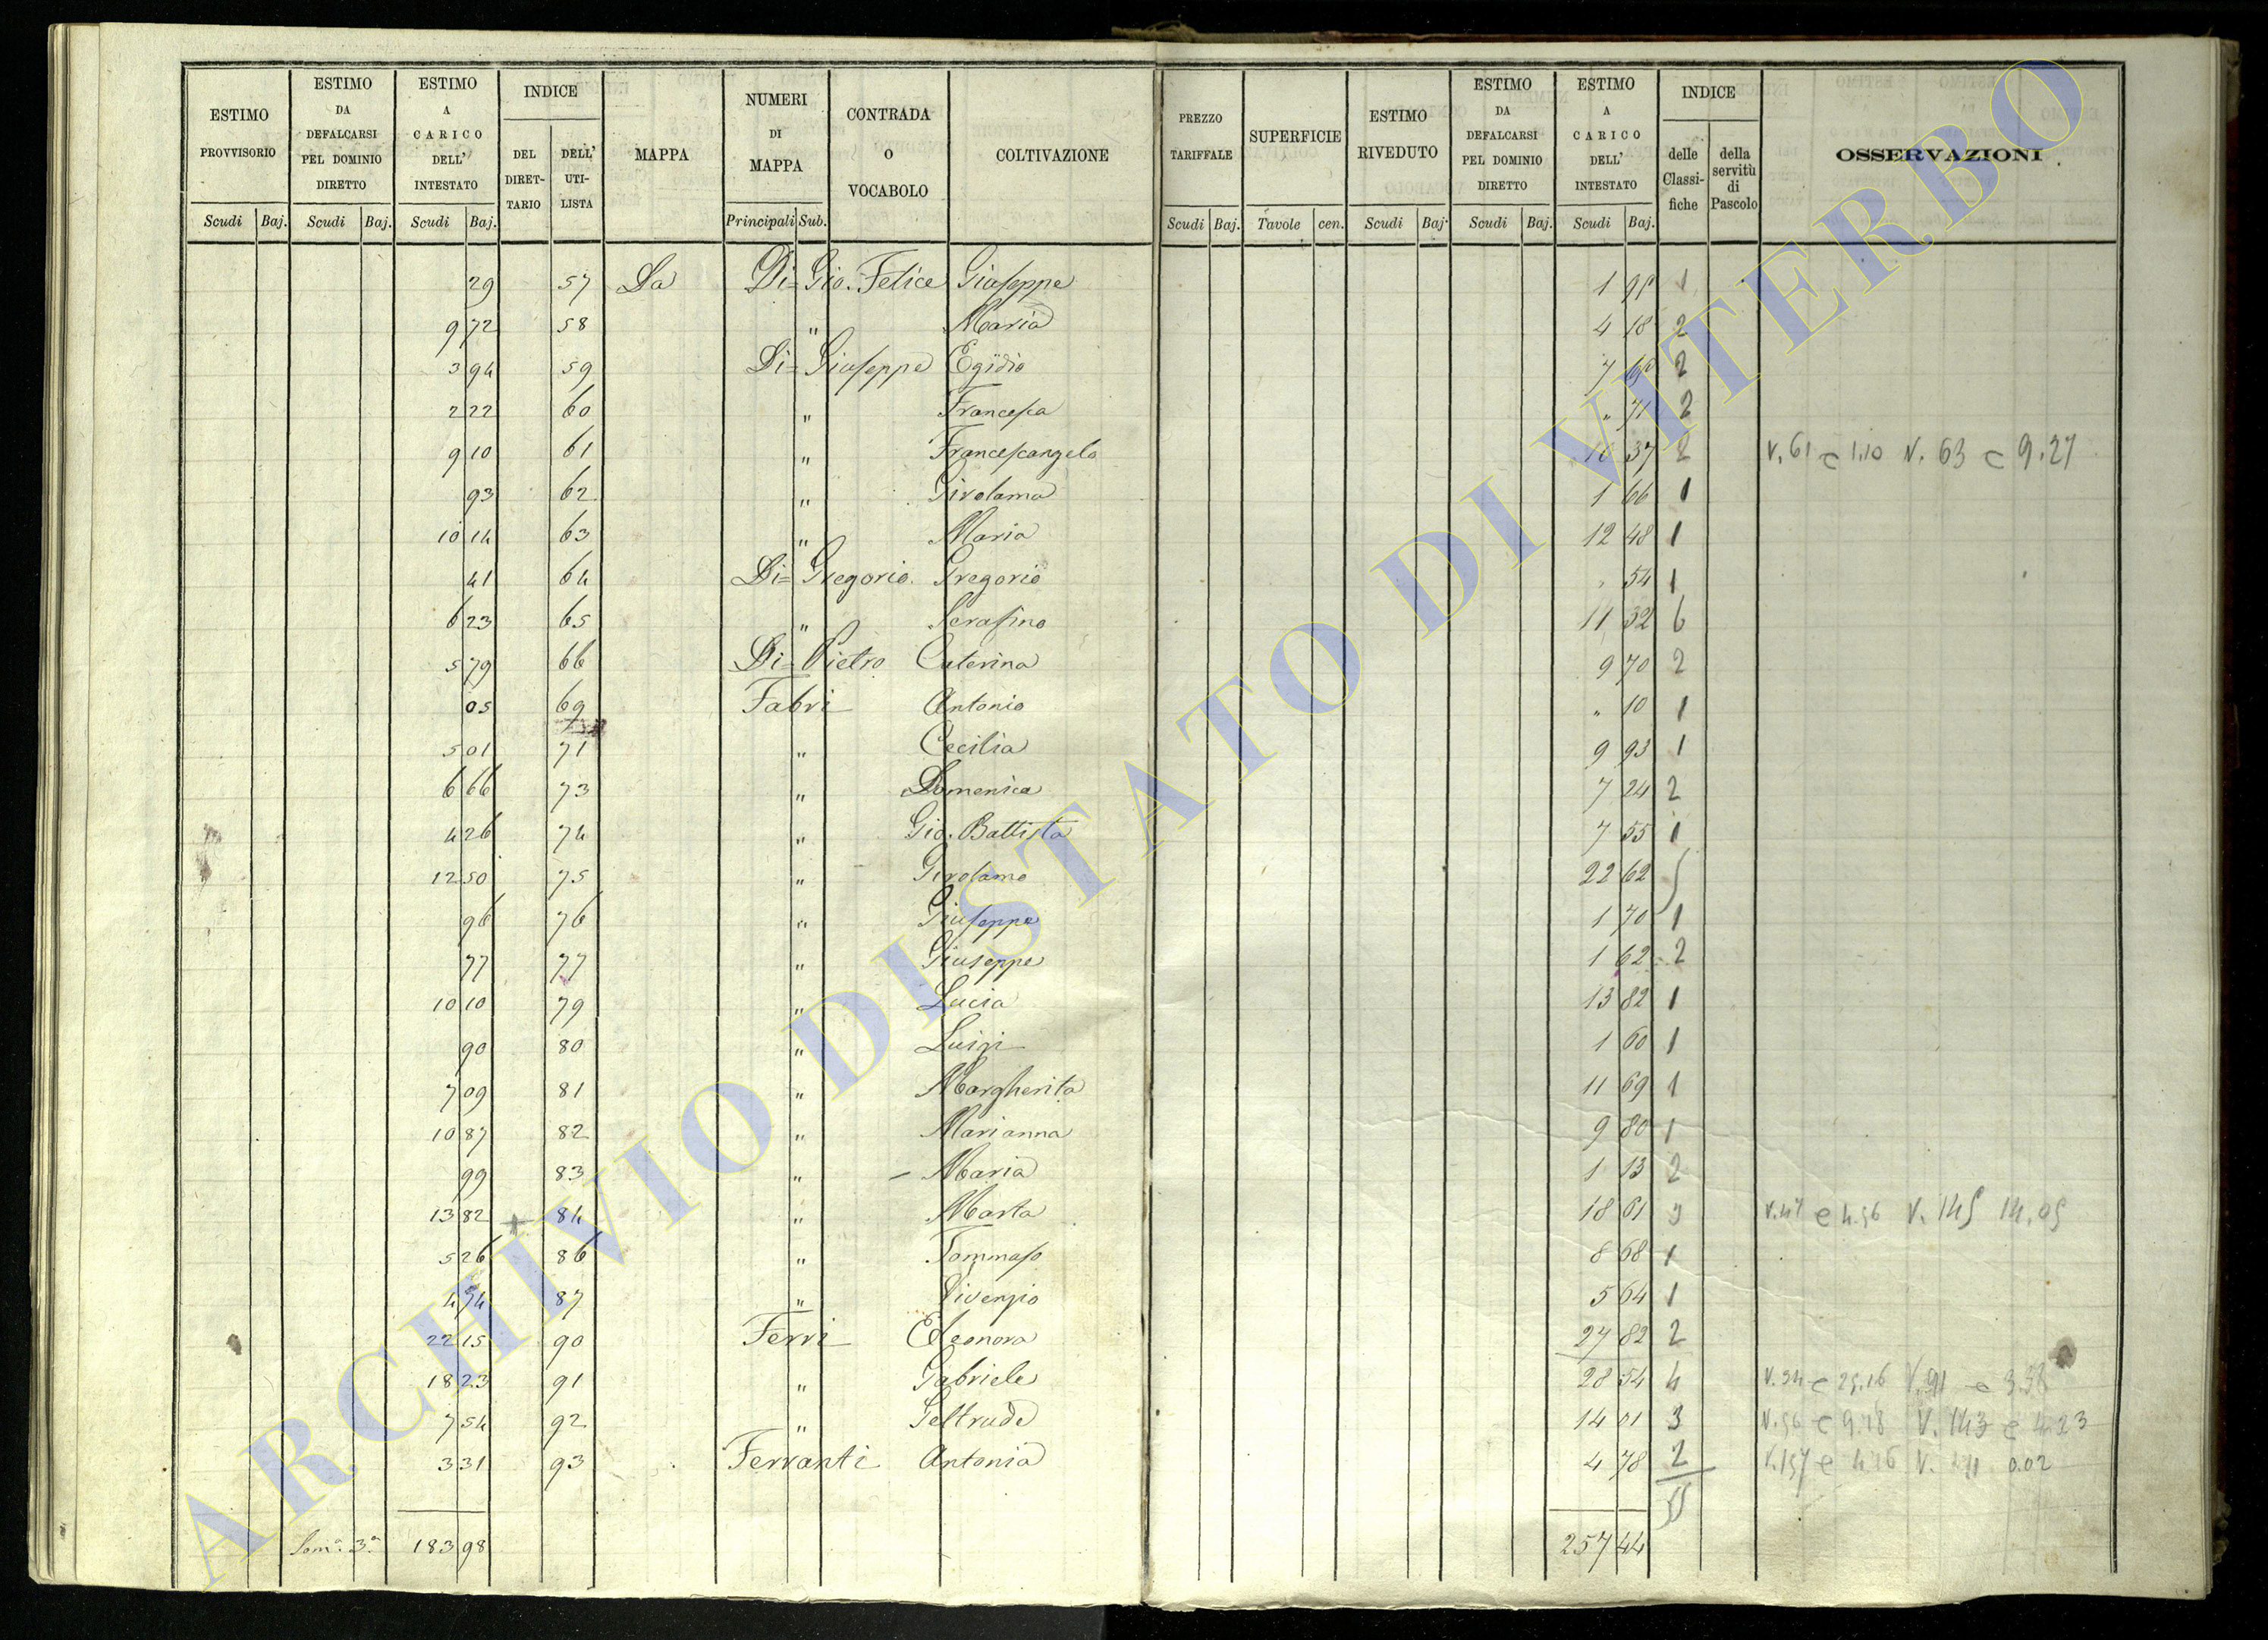 ESTIMO PROVVISORIO | ESTIMO DA DEFALCARSI PEL DOMINIO DIRETTO | ESTIMO A CARICO DELL' INTESTATO | INDICE | MAPPA | NUMERI DI MAPPA | CONTRADA O VOCABOLO | COLTIVAZIONE | PREZZO TARIFFALE | SUPERFICIE | ESTIMO RIVEDUTO | ESTIMO DA DEFALCARSI PEL DOMINIO DIRETTO | ESTIMO A CARICO DELL' INTESTATO | INDICE | OSSERVAZIONI
DEL DIRETTARIO | DELL' UTILISTA | delle Classifiche | della servitù di Pascolo
Scudi Baj. Scudi Baj. Scudi Baj. Principali Sub. Scudi Baj. Tavole cen. Scudi Baj. Scudi Baj. Scudi Baj.
29 57 Da Di= Gio. Felice Giuseppe 1 1
9 72 58 " Maria 4 18 2
3 94 59 Di= Giuseppe Egidio 7 2
2 22 60 " Francesca " 71 2
9 10 61 " Francescangelo 10 37 2 V. 61 e 1.10 V. 63 e 9.27
93 62 " Girolama 1 66 1
10 14 63 " Maria 12 48 1
41 64 Di= Gregorio Gregorio 54 1
6 23 65 " Serafino 11 32 6
5 79 66 Di= Pietro Caterina 9 70 2
05 69 Fabri Antonio " 10 1
5 01 71 " Cecilia 9 93 1
6 66 73 " Domenica 7 24 2
4 26 74 " Gio. Battista 7 55 1
12 50 75 " Girolamo 22 62
96 76 " Giuseppe 1 70 1
77 77 " Giuseppe 1 62 2
10 10 79 " Lucia 13 82 1
90 80 " Luigi 1 60 1
7 09 81 " Margherita 11 69 1
10 87 82 " Marianna 9 80 1
99 83 " – Maria 1 13 2
13 82 + 84 " Marta 18 61 V. 47 e 4.56 V. 145 14.05
5 26 86 " Tommaso 8 68 1
4 74 87 " Vivenzio 5 64 1
22 15 90 Ferri Eleonora 27 82 2
18 23 91 " Gabriele 28 54 4 V. 54 e 25.16 V. 91 e 3.38
7 54 92 " Geltrude 14 01 3 V. 56 e 9.18 V. 143 e 4.23
3 31 93 Ferranti Antonia 4 78 2 V. 157 e 4.76 V. 0.02
Som.ª 3.ª 183 98 257 44
ARCHIVIO DI STATO DI VITERBO